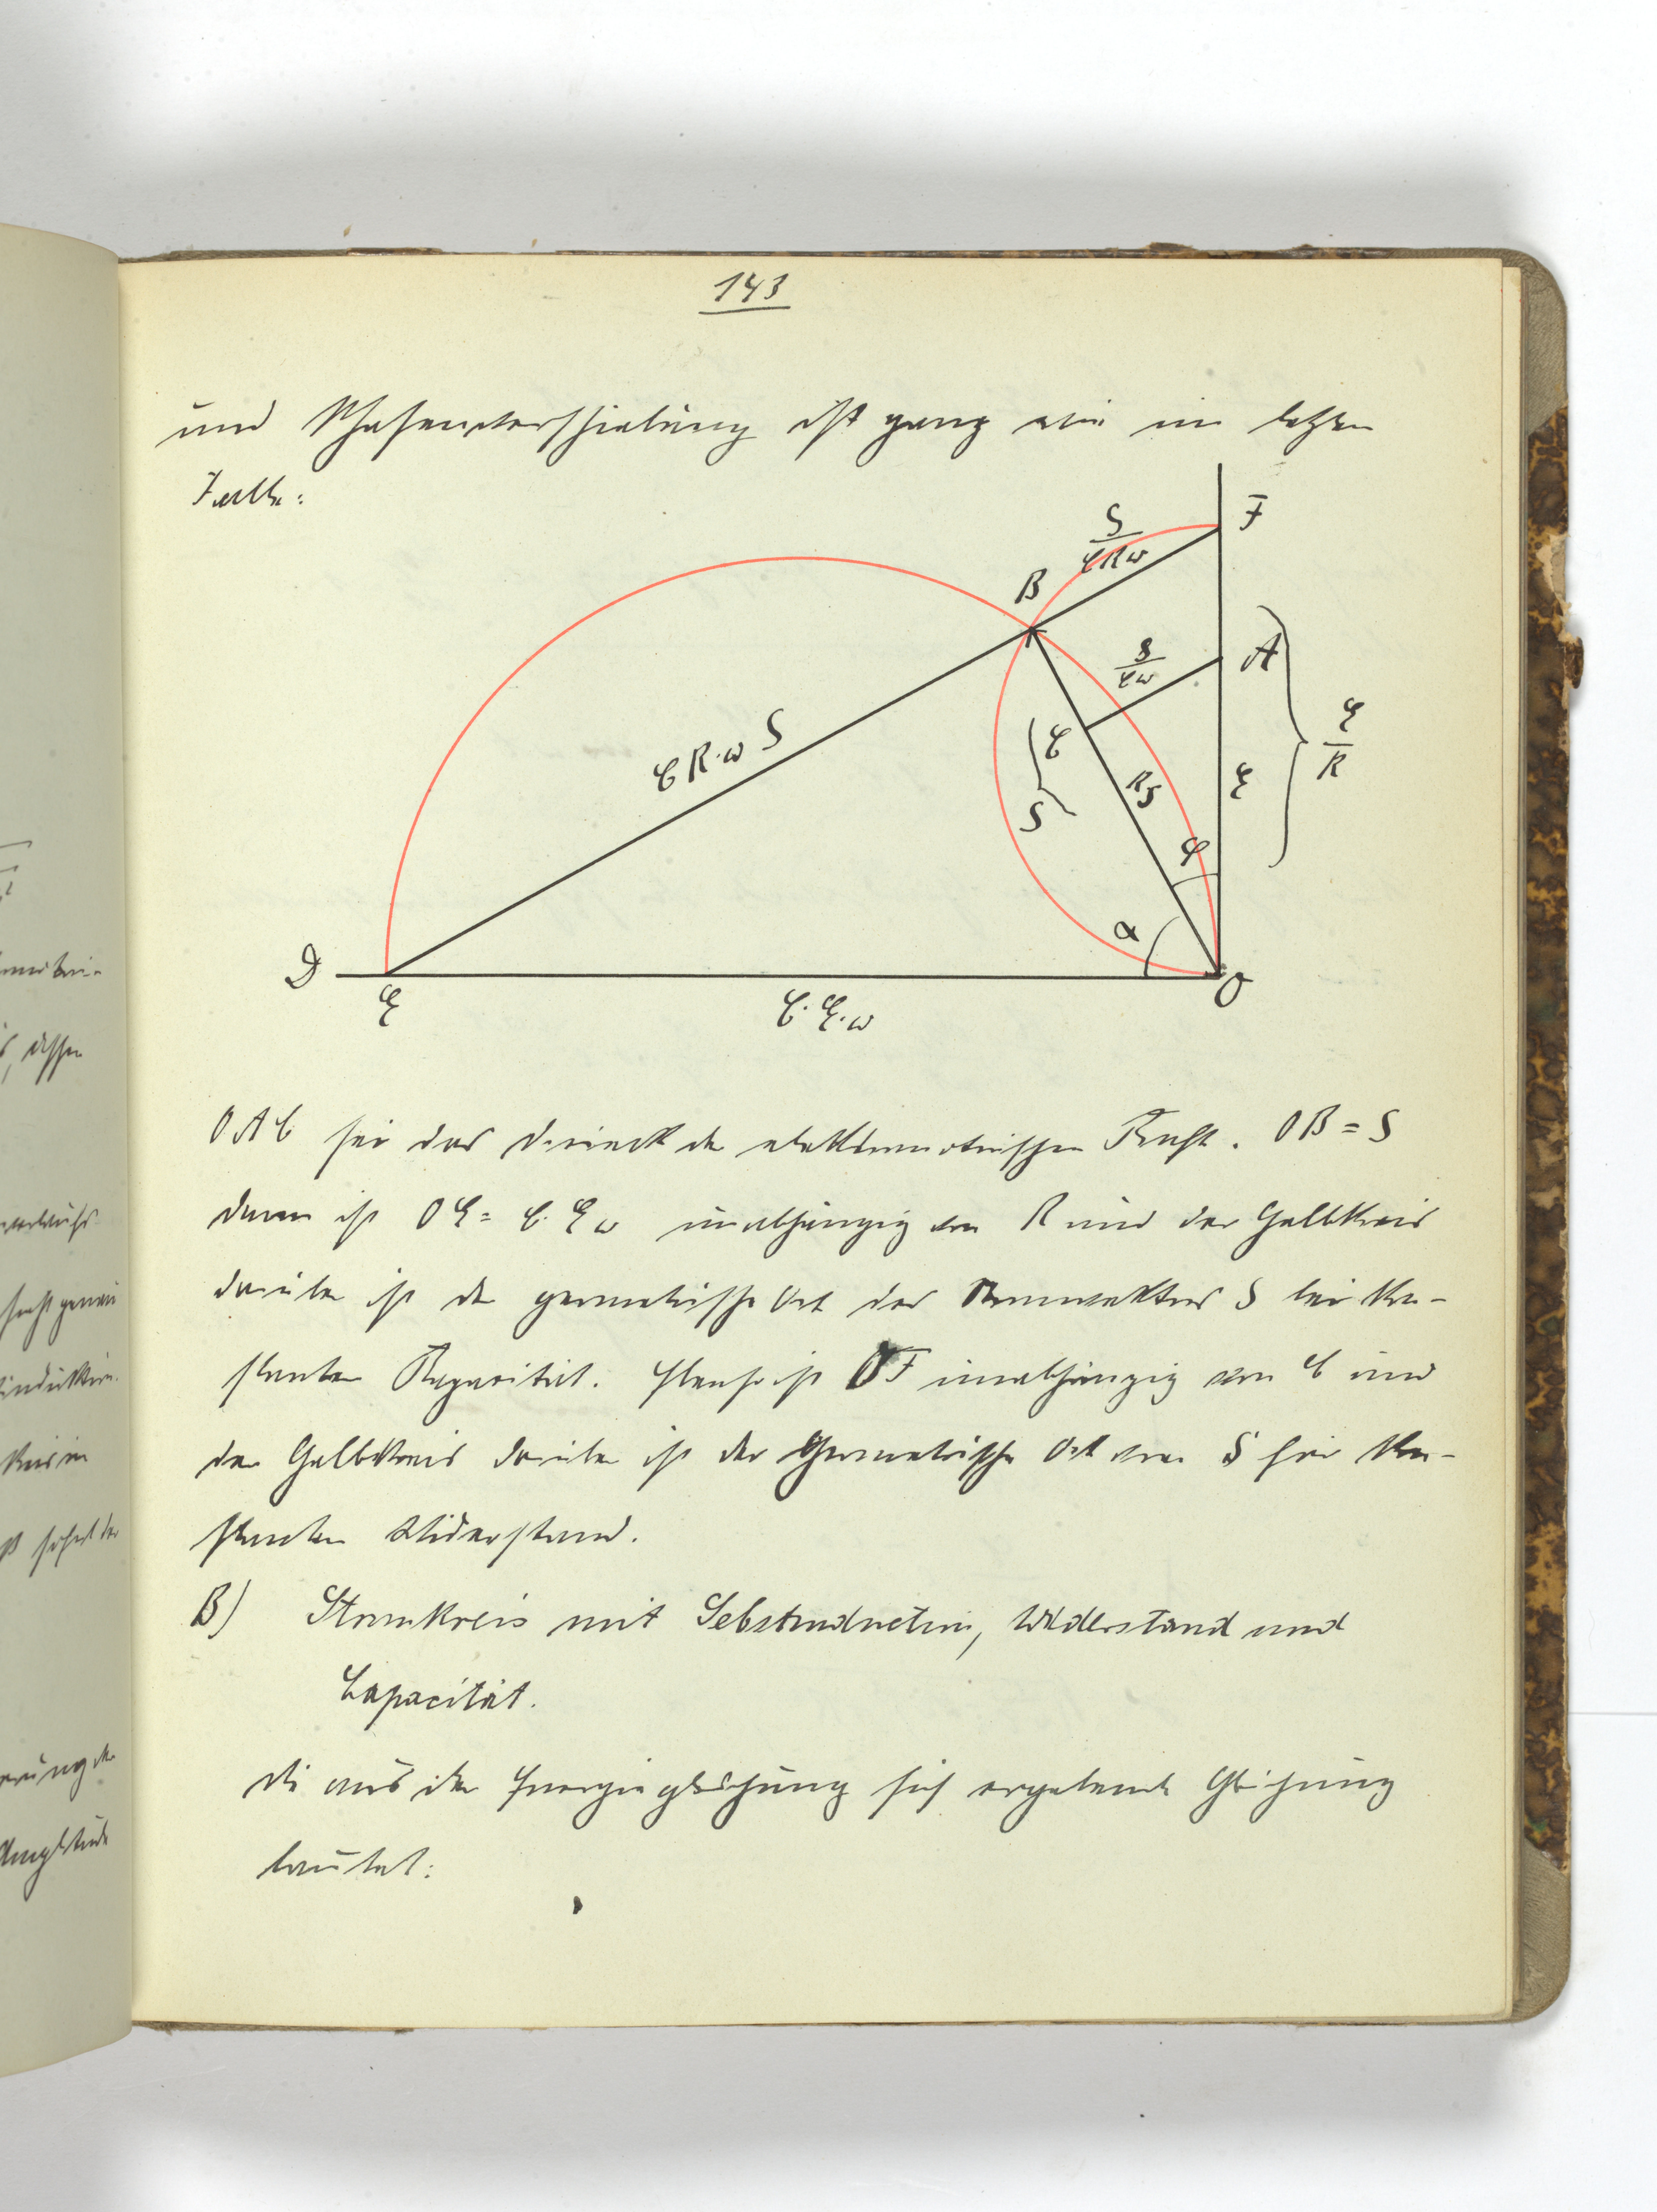 143
und Phasenverschiebung ist ganz wie im letzten
Falle:
F
S
CRω
B
A
S
Cω
E
R
CR·ω S
C
RS
E
S
φ
α
D
E
C·E·ω
O
OAC sei das Dreieck der elektromotrischen Kraft. OB = S
dann ist OE = C·Eω unabhängig von R und der Halbkreis
darüber ist der geometrische Ort des Stromvektors S bei Kon-
stanter Kapazität. Ebenso ist OF unabhängig von C und
der Halbkreis darüber ist der Geometrische Ort von S für Kon-
stanten Widerstand.
B) Stromkreis mit Sebstinduction, Widerstand und
Capacität.
Die aus der Energiegleichung sich ergebende Gleichung
lautet: